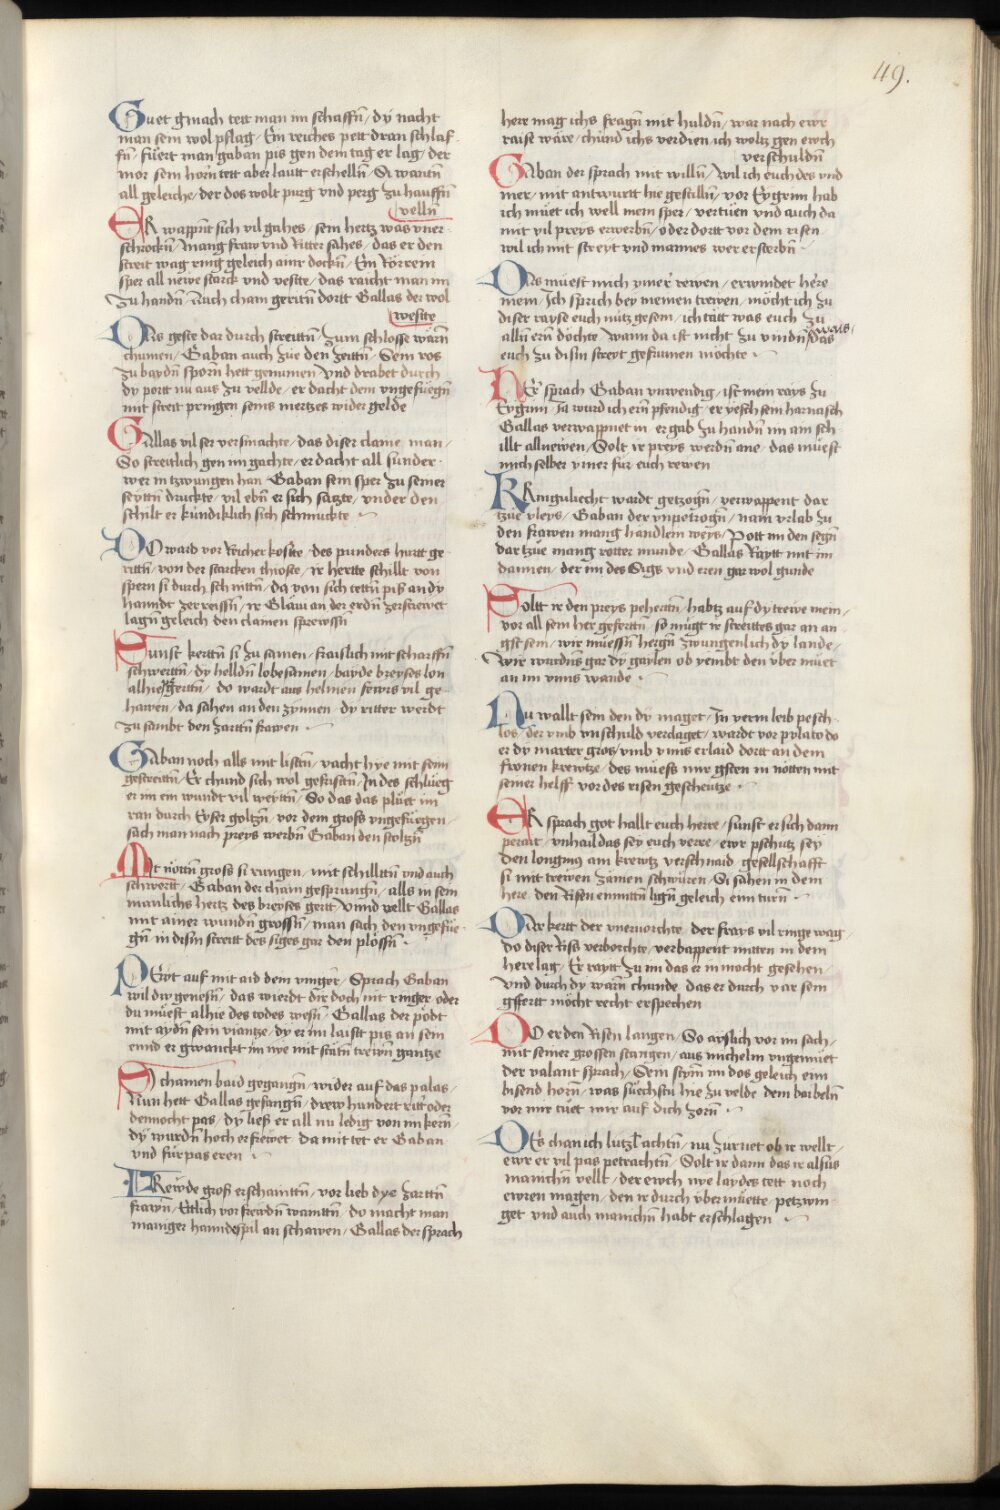 49.
Guet gmach tett man im schaffn̄ / dy nacht
man sein wol pflag / Ein reiches pett dran schlaf
fn̄ / fuert man gaban pis gen dem tag er lag / der
mor sein horn tett aber lautt erschelln̄ / Si wantn̄
all geleiche / der dos wolt purg vnd perg zu hauffn̄
velln̄
ER wappnt sich vil gahes / sein hertz was vner
schrockn̄ / Mang fraw vnd Ritter sahes / das er den
streit wag ring geleich ainr dockn̄ / Ein Rorrein
sper all newe starck vnd veste / das raicht man im
zu handn̄ / Nach cham geritn̄ dortt Gallas der wol
weste
DAs geste dar durch streittn̄ / zum schlosse warn̄
chumen / Gaban auch zue den zeittn̄ / Sein ros
zu baydn̄ sporn̄ hett genumen / Vnd drabet durch
dy portt nu aus zu vellde / er dacht dem vngefuegn̄
mit streit pringen seins mertzes wider gelde
GAllas vil ser versmachte / das diser claine man /
So streitlich gen im gachte / er dacht all sunder
wer in tzwungen han / Gaban sein sper zu seiner
seyttn̄ druckte / vil ebn̄ er sich satzte / vnder den
schilt er kundiklich sich schmuckte
DO ward vor Reicher koste / des punders hurtt ge
rittn̄ / von der starcken thioste / ir hertte schillt von
spern si durch schnittn̄ / da von sich tettn̄ pis an dy
hanndt zerreissn̄ / ir Glavi an der erdn̄ zerstrewet
lagn̄ geleich den clainen sprewssn̄
Sunst kertn̄ si zu samen / fraislich mit scharffn̄
schwerttn̄ / dy helldn̄ lobesamen / bayde breyses lon
alhie gertn̄ / do wardt aus helmen fewrs vil ge
hawen / da sahen an den zynnen / dy ritter werdt
zu sambt den zarttn̄ frawen
GAban noch alls mit listn̄ / vacht hye mit sein
gestreittn̄ / Er chund sich wol gefristn̄ / In des schlueg
er im ein wundt vil weyttn̄ / So das das pluet im
ran durch Eyser goltzn̄ / vor dem gross vngefuegen
sach man nach preys werbn̄ Gaban den stoltzn̄
Mit nöttn̄ gross si rungen / mit schilltn̄ vnd auch
schwertt / Gaban der cham gesprungn̄ / alls in sein
manlichs hertz des breyses gertt / Vnnd vellt Gallas
mit ainer wundn̄ grossn̄ / man sach den vngefue
gn̄ in disin streitt des siges gar den plossn̄
PEwt auf mit aid dein vinger / Sprach Gaban
wil dw genesn̄ / das wierdt dir doch nit ringer oder
du muest alhie des todes wesn̄ / Gallas der podt
mit aydn̄ sein vianntze / dy er im laistt pis an sein
ennd er gwanckt im nye mit statn̄ trewn̄ gantze
Si chamen baid gegangn̄ / wider auf das palas /
Nun hett Gallas gefangn̄ / drew hundert ritt oder
dennocht pas / dy liess er all nu ledig von im kern̄ /
dy wurdn̄ hoch erfrewet / da mit tet er Gaban
vnd fur pas eren
FRewde gross erschainttn̄ / vor lieb dye zarttn̄
frawn̄ / Ettlich vor frewdn̄ wainttn̄ / do macht man
maniger hanndspil an schawen / Gallas der sprach
here mag ichs fragn̄ mit huldn̄ / war nach ewr
raise ware / chund ichs verdien / ich woltz gen ewch
verschuldn̄
GAban der sprach mit willn̄ / wil ich euch des vnd
mer / mit antwurtt hie gestilln̄ / vor Eygrim hab
ich muet ich well mein sper / vertuen vnd auch da
mit vil preys erwerbn̄ / oder dortt vor dem risen /
wil ich mit streyt vnd mannes wer ersterbn̄
DAs muest mich ymer rewen / erwindet here
mein / Ich sprich bey meinen trewen / möcht ich zu
diser rayse euch nutz gesein / ich tätt was euch zu
alln̄ ern̄ döchte / wann da ist nicht zu vindn̄ / das
wais /
euch zu disin streyt gefrumen möchte
HEr sprach Gaban vnwendig / ist mein rays zu
Eygrim / Ja wurd ich ern̄ pfendig / er yesch sein harnasch
Gallas verwappnet in / er gab zu handn̄ im ain sch
illt allnewen / Solt ir preys werdn̄ ane / das muest
mich selber ymer fur euch rewen
KRinguliecht wardt getzogn̄ / verwappent dar
tzue vleys / Gaban der vnpetrogn̄ / nam vrlab zu
den frawen mang handlein weys / Pott im den segn̄
dar tzue mang rotter munde / Gallas Raytt mit im
dannen / der im des Sigs vnd eren gar wol gunde
Soltt ir den preys pehertn̄ / habtz auf dy trewe mein /
vor all sein hergefertn̄ / so mugt ir streittes gar an an
gst sein / wir muessn̄ hergn̄ zwungenlich dy lande /
Wir wurdns gar dy gaylen ob yembt den vber muet
an im vnns wande
Nu wallt sein den dy maget / In verm leib pesch
los / der vmb vnschuld verclaget / wardt vor pylato do
er dy marter gros / vmb vnns erlaid dortt an dem
fronen krewtze / des muess mir gsten in nötten mit
seiner helff vor des risen gescheutze
ER sprach got hallt euch herre / sunst er sich dann
perait / vnhail das sey euch verre / ewr pschutz sey
den longinus am krewtz verschnaid / gesellschafft
si mit trewen zamen schwuren / Si sahen in dem
here / den Risen enmittn̄ lign̄ geleich eim turn̄
DAr kertt der vnervorchte / der frays vil ringe wag
do diser Riss verborchte / verbappent mitten in dem
here lag / Er raytt zu im das er in mocht gesehen /
Vnd durch dy warn̄ chunde das er durch var sein
gffertt möcht recht erspechen
DO er den Risen langen / So ayslich vor im sach /
mit seiner grossen stangen / aus michelm vngemuet
der valant sprach / Sein stym im dos geleich eim
bisend horn̄ / was suechstu hie zu velde dem barbeln̄
vor mir tuet mir auf dich zorn̄
DEs chan ich lutzl achtn̄ / nu zurnet ob ir wellt /
ewr er vil pas petrachtn̄ / Solt ir dann das ir alsus
manichn̄ vellt / der ewch nye laydes tett noch
ewren magen / den ir durch vbermuette / petzwin
get vnd auch manichn̄ habt erschlagen